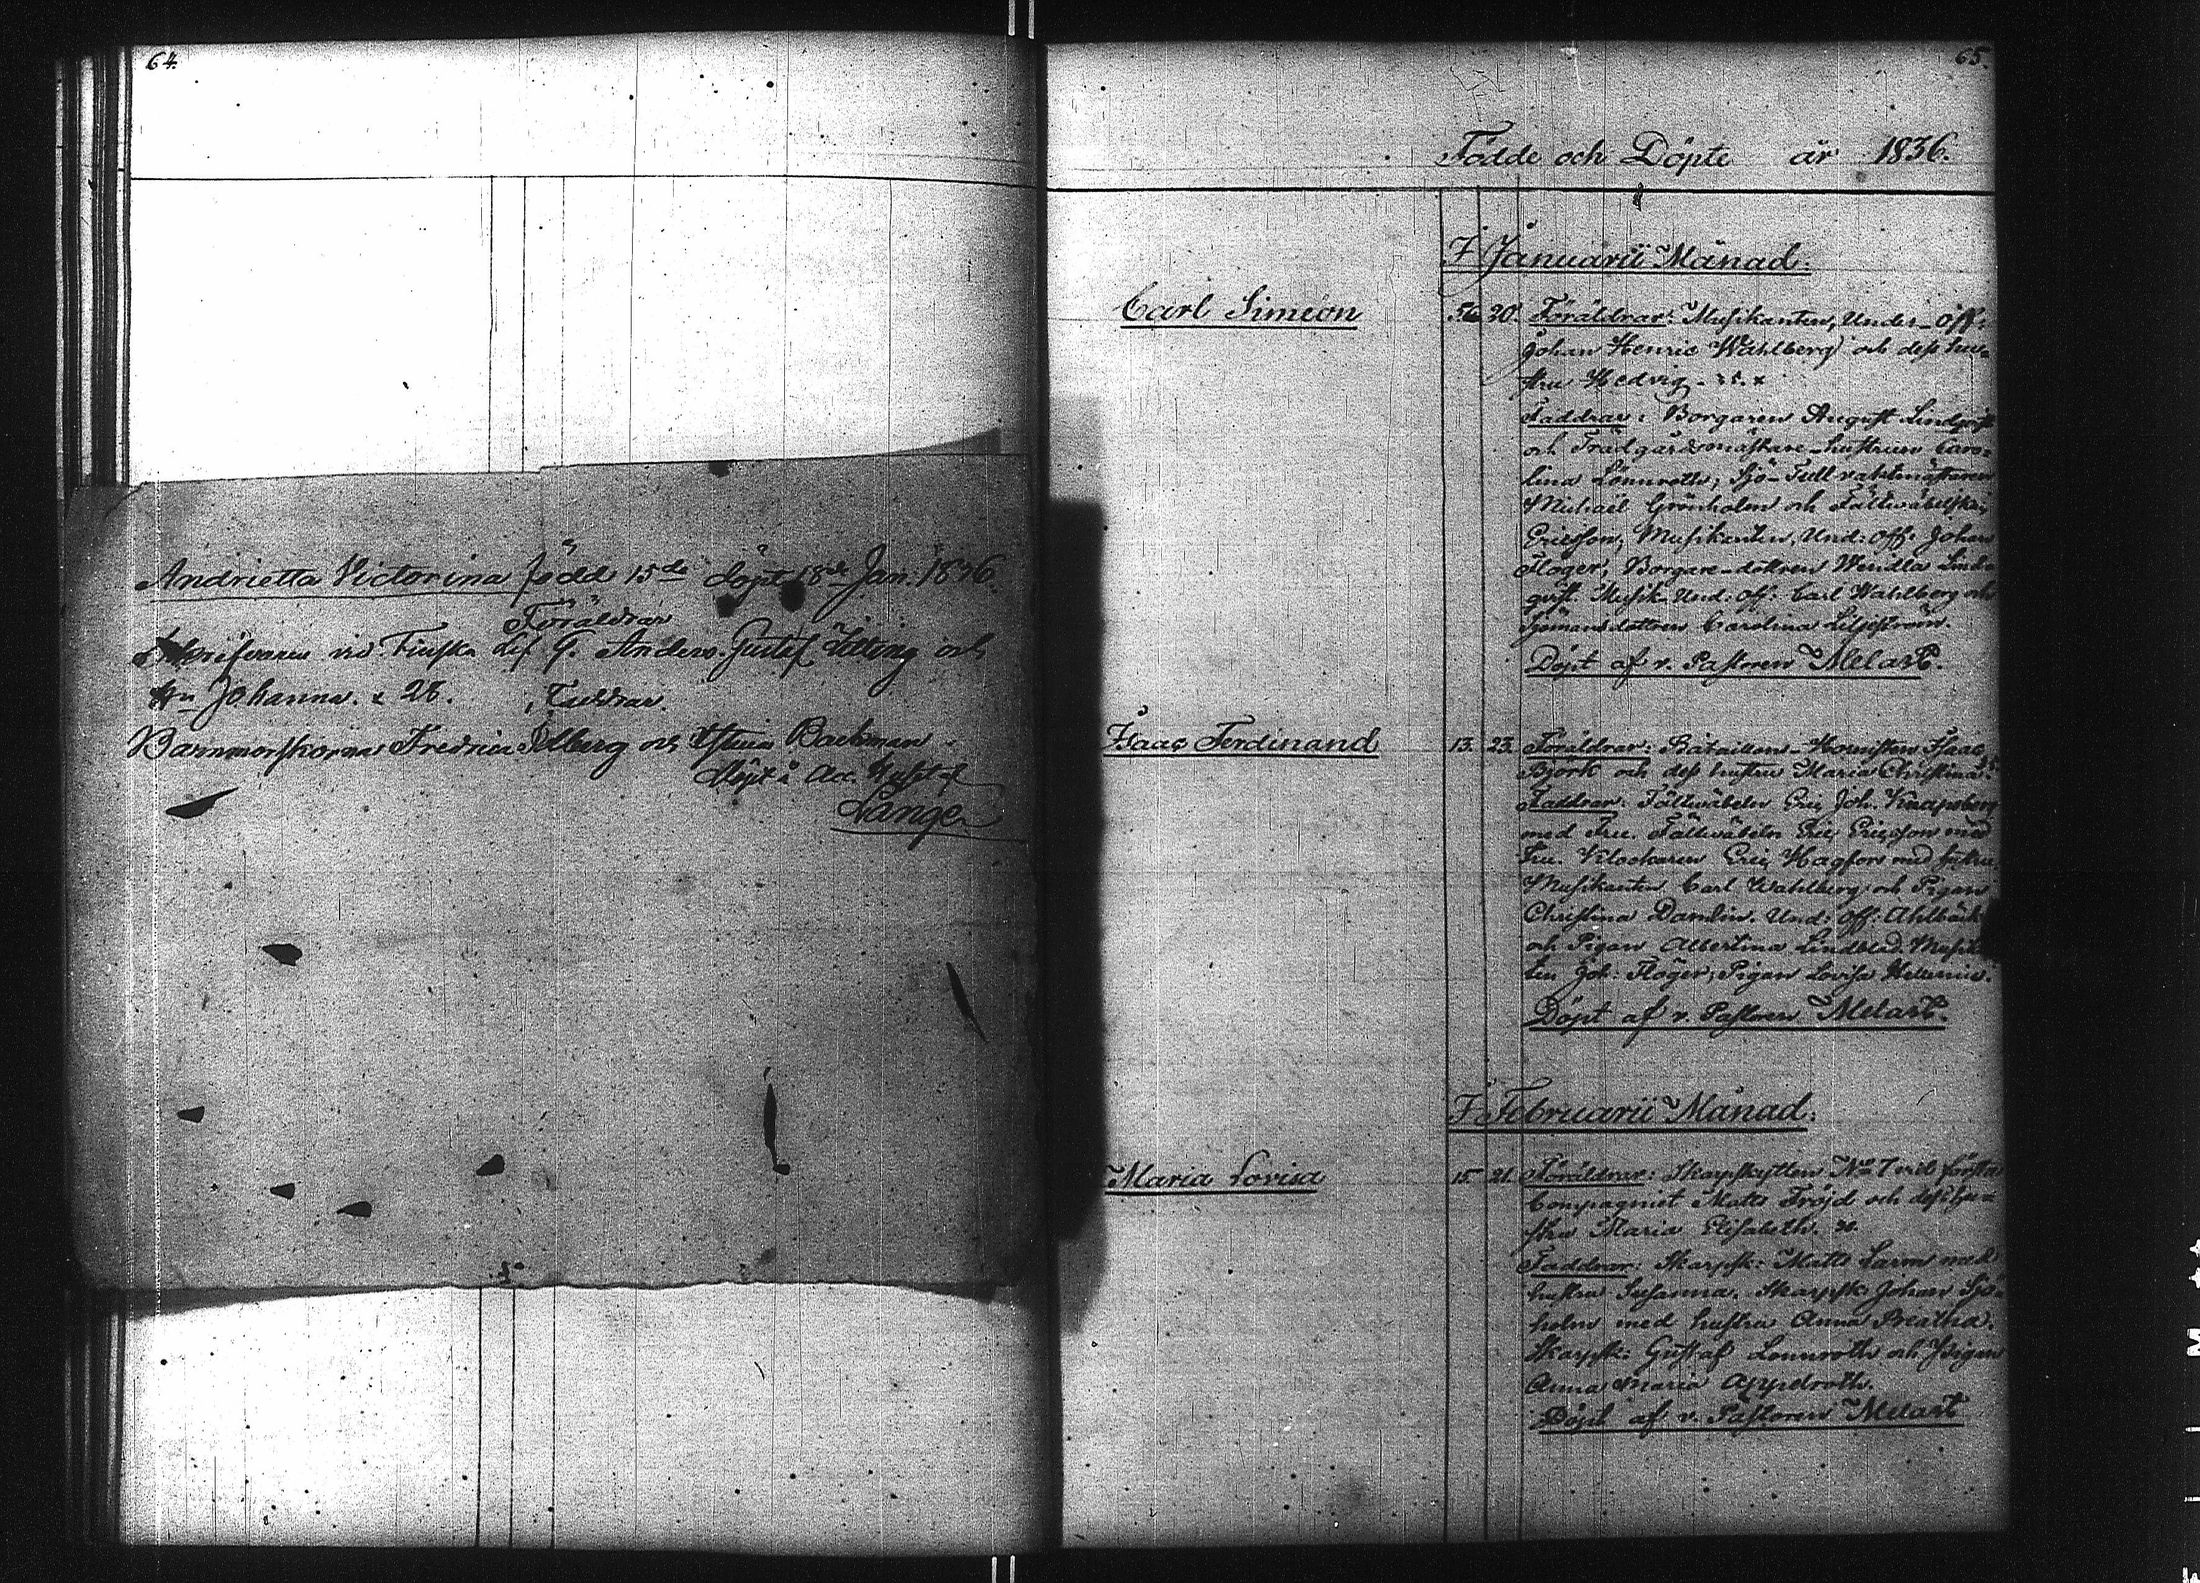 64.
Andrietta Victorina född 15de döpt 18de Jan. 1836.
Föräldrar
Skrifvaren vid Finska Anders Gustaf och
Hu Johanna. x 28. Faddrar.
Barnmorskorna Fredrica och Backman
Döpt
Langen
65.
Födde och Döpte år 1836.
F Januarii Månad.
Carl Simeon
20. Föräldrar: Musikanten, Under-Off:
Johan Henric Wahlberg och dess hu-
stru Hedvig.
Faddrar: Borgaren August Lindqvist
och Trädgårdsmästare-hustrun Caro-
lina Lönnroth, Sjö-Tullvaktmästaren
Michaël Grönholm och Fältwäbelskan
Ericsson, Musikanten, Und: Off: Johan
Floger, Borgare-dottren Wendla Lind-
qvist. Musik-Und: Off: Carl Wahlberg och
sjömansdottren Carolina Liljeström.
Döpt af v. Pastoren Melart.
Isaac Ferdinand
13. 23. Föräldrar: Bataillons-Hornisten Isaac
Björk och dess hustru Maria Christina
Faddrar: Fältwäbeln Eric Joh. Knapsberg
med Fru. Fältwäbeln Eric Ericsson med
Fru. Klockaren Eric Hagfors med hustru
Musikanten Carl Wahlberg och Pigan
Christina Damlin. Und: Off: Ahlbäck
och Pigan Albertina Lindblad. Musikan-
ten Joh: Floger, Pigan Lovisa Hellenius.
Döpt af v. Pastoren Melart.
F Februarii Månad.
Maria Lovisa
15. 21. Föräldrar: Skarpskytten No 7 vid första
Compagniet Matts Fröjd och dess hu-
stru Maria Elisabeth.
Faddrar: Skarpsk: Matts Larm med
hustru Susanna. Skarpsk: Johan Sjö-
holm med hustru Anna Beatha.
Skarpsk: Gustaf Lönnroth och Pigan
Anna Maria Appelroth.
Döpt af v. Pastoren Melart